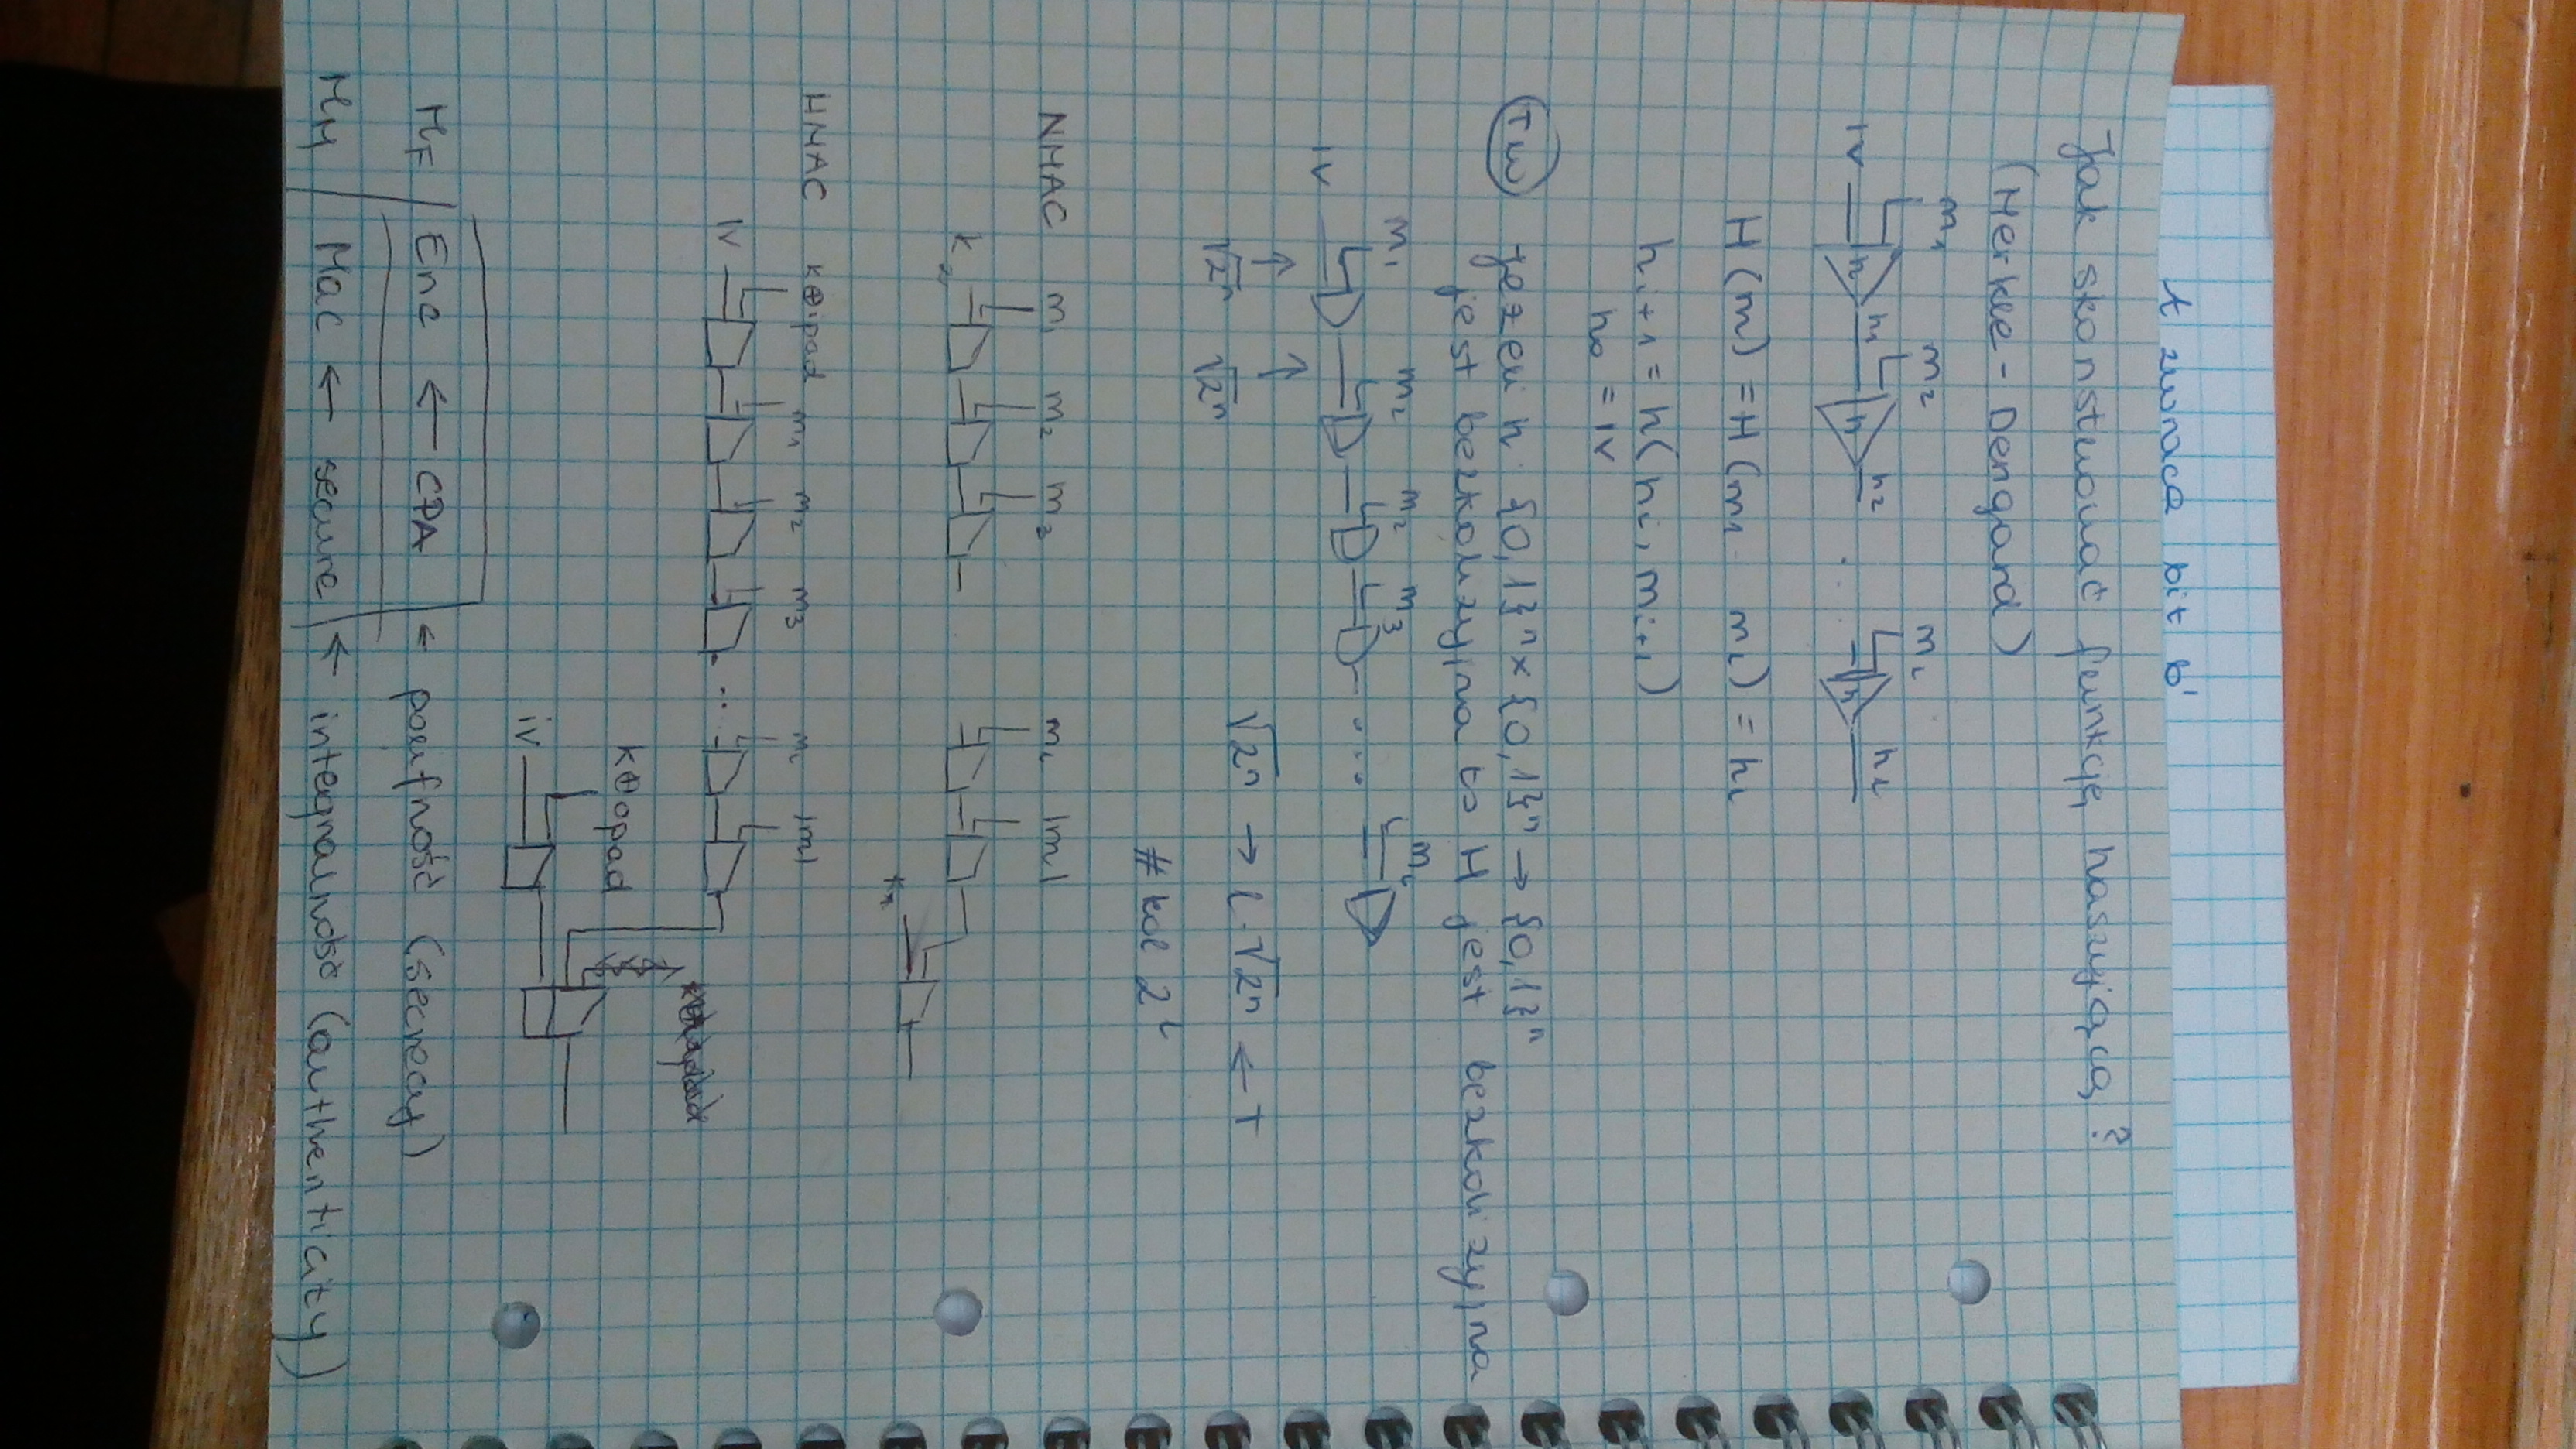 A zwraca bit b'
Jak skonstruować funkcję haszującą?
(Merkle-Dengard)
m₁ m₂ mₗ
IV h h₁ h h₂ . . h hₗ
H(m) = H(m₁ mₗ) = hₗ
hᵢ+₁ = h(hᵢ, mᵢ+₁)
h₀ = IV
Tw jeżeli h: {0,1}ⁿ x {0,1}ⁿ → {0,1}ⁿ
jest bezkolizyjna to H jest bezkolizyjna
m₁ m₂ m₂ m₃ mₗ
IV ....
↑ ↑
√2ⁿ √2ⁿ √2ⁿ → l·√2ⁿ ← T
#kol 2ˡ
NMAC m₁ m₂ m₃ mₗ |m|
k₂
k₁
HMAC k⊕ipad m₁ m₂ m₃ mₗ |m|
IV ...
k⊕opad
iv
M_F / Enc ← CPA ← poufność (secrecy)
M_M / Mac ← secure ← integralność (authenticity)